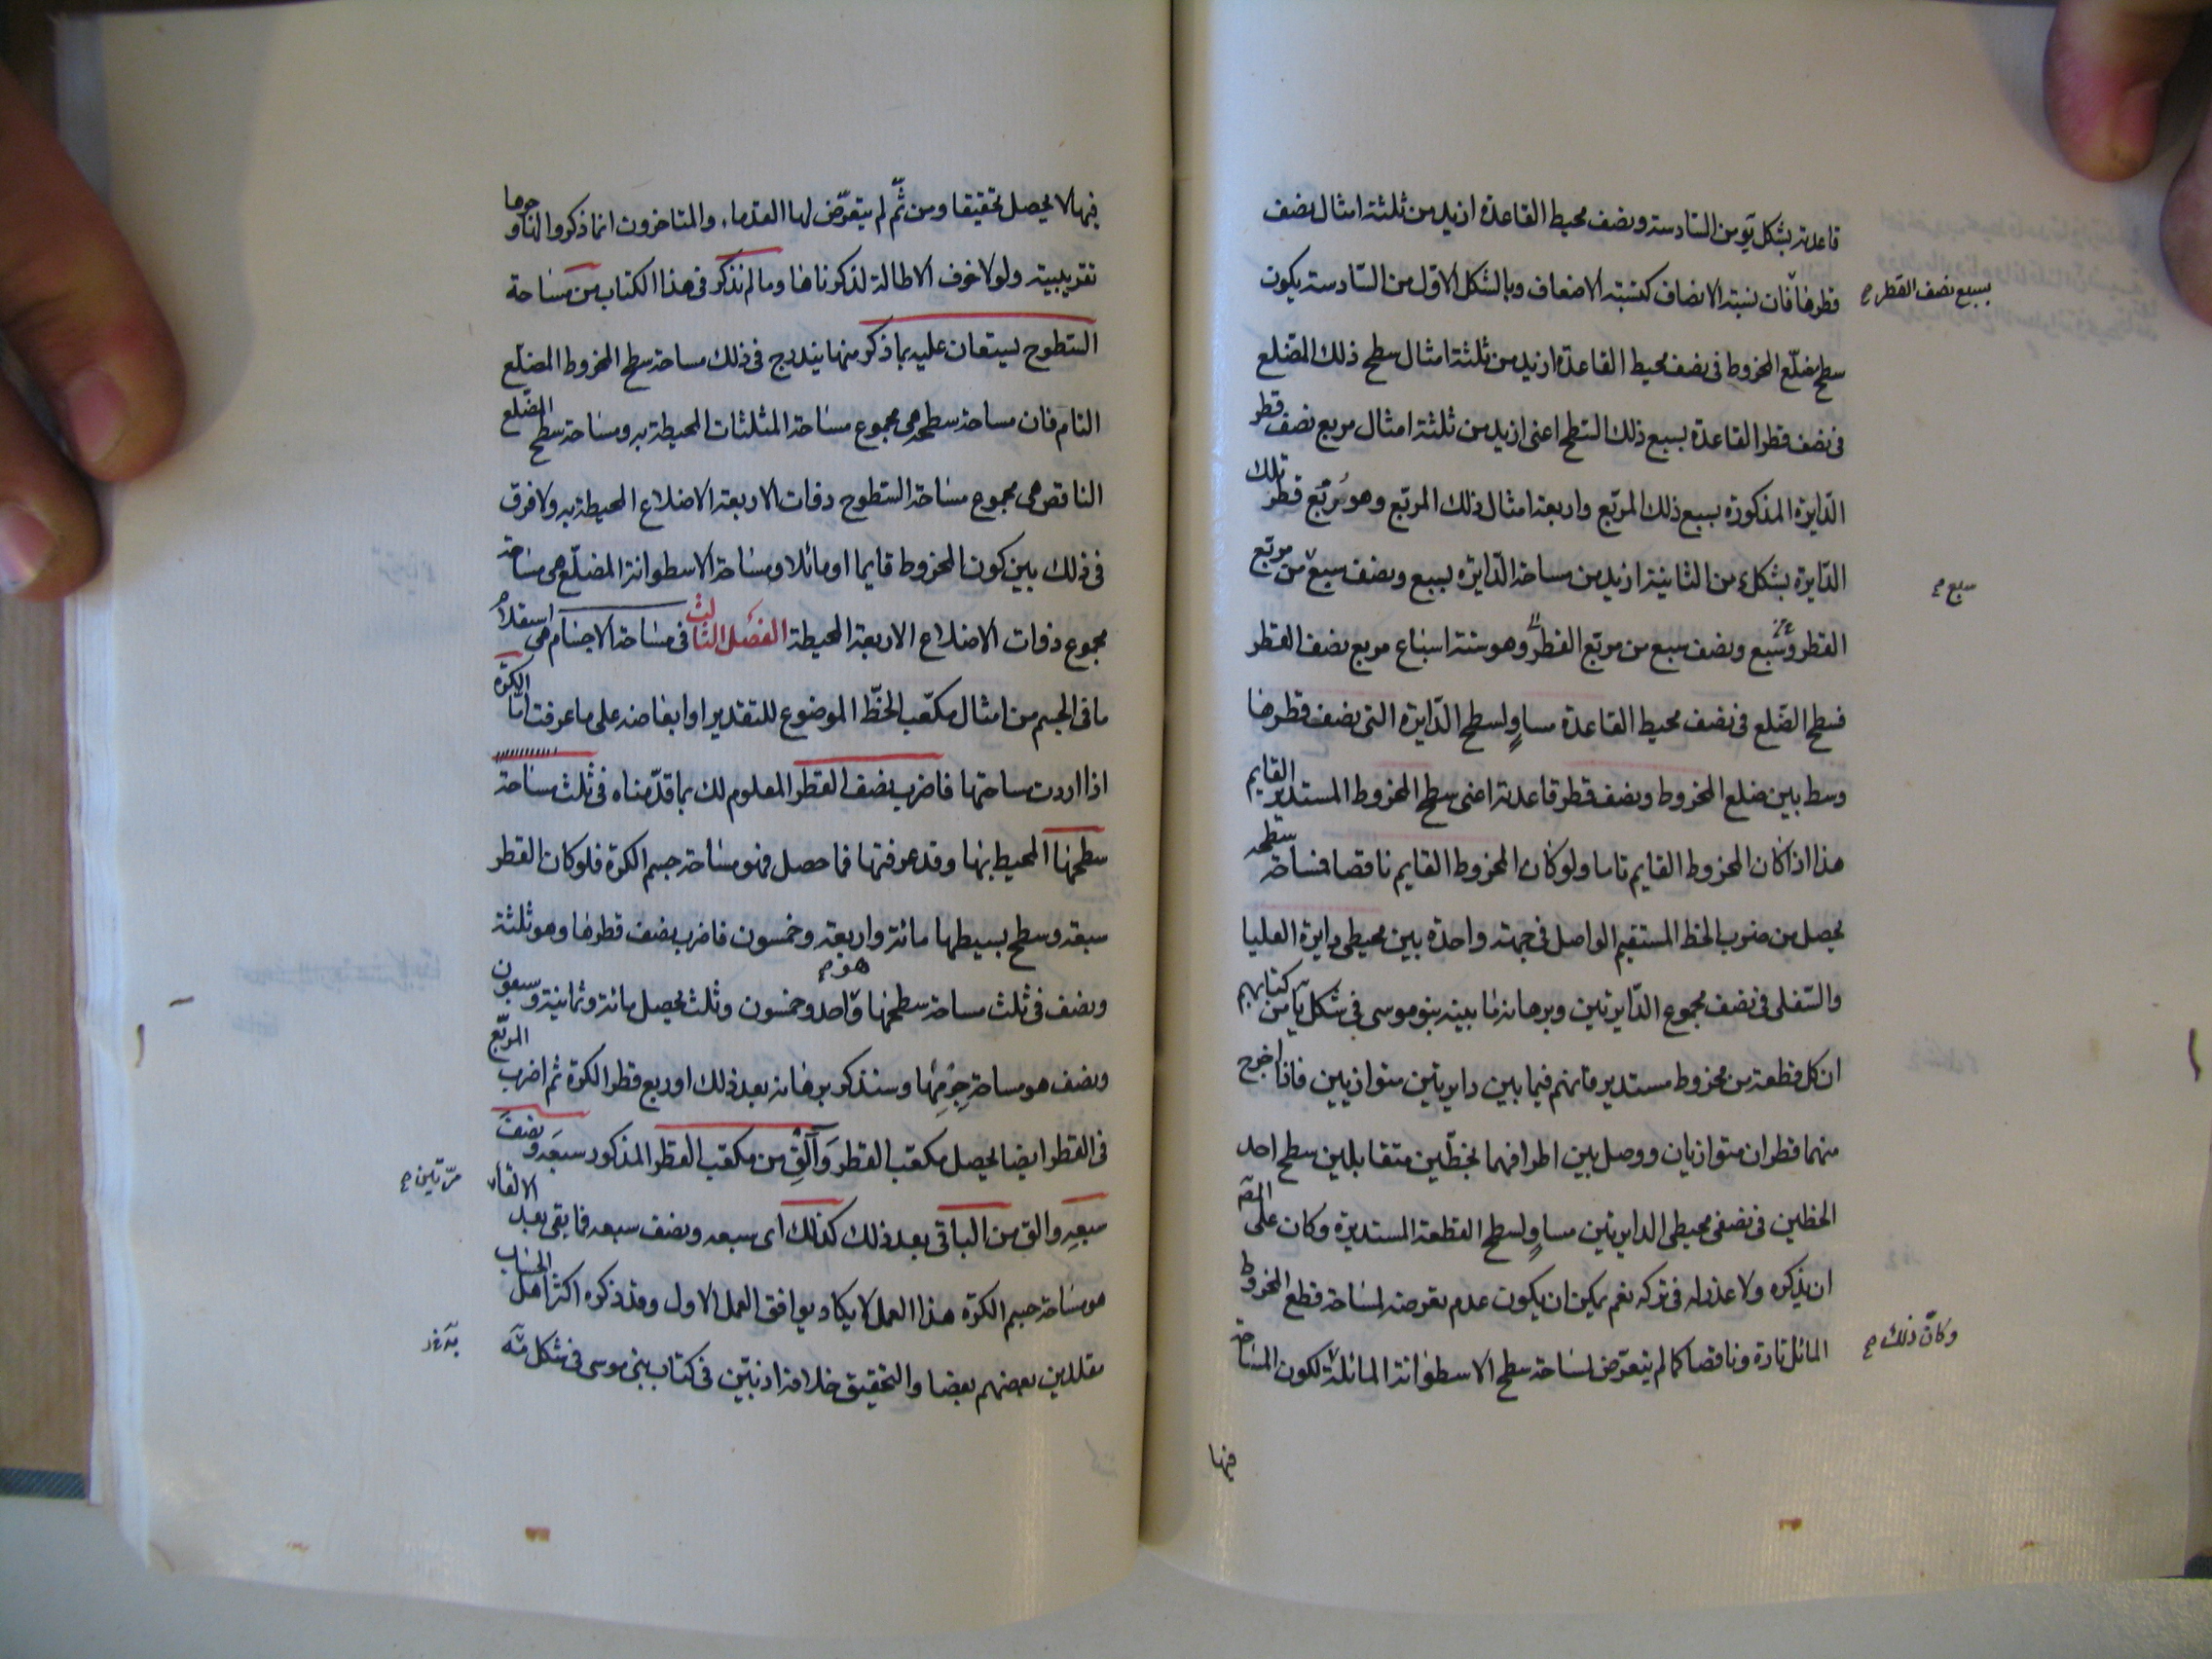 قاعدته بشكل يو من السادسة ونصف محيط القاعدة ازيد من ثلثة امثال نصف
قطرها فان نسبة الانصاف كنسبة الاضعاف وبالشكل الاول من السادسة يكون
بسبع نصف القطر
سطح ضلع المخروط فى نصف محيط القاعدة ازيد من ثلثة امثال سطح ذلك الضلع
فى نصف قطر القاعدة بسبع ذلك السطح اعنى ازيد من ثلثة امثال مربع نصف قطر
الدايرة المذكورة بسبع ذلك المربع واربعة امثال ذلك المربع وهو مربع قطر تلك
الدايرة بشكل من الثانية ازيد من مساحة الدايرة بسبع ونصف سبع من مربع
سبع
القطر وسبع ونصف سبع من مربع القطر وهو ستة اسباع مربع نصف القطر
فسطح الضلع فى نصف محيط القاعدة مساو لسطح الدايرة التى نصف قطرها
وسط بين ضلع المخروط ونصف قطر قاعدته اعنى سطح المخروط المستدير القايم
هذا اذا كان المخروط القايم تاما ولو كان المخروط القايم ناقصا فمساحة سطحه
يحصل من ضرب الخط المستقيم الواصل فى جهة واحدة بين محيطى دايرة العليا
والسفلى فى نصف مجموع الدايرتين وبرهانه ما بينه بنو موسى فى شكل يا من كتابهم
ان كل قطعة من مخروط مستدير قايم فيما بين دايرتين متوازيين فاذا اخرج
منهما قطران متوازيان ووصل بين اطرافهما بخطين متقابلين سطح احد
الخطين فى نصفى محيطى الدايرتين مساو لسطح القطعة المستديرة وكان على المص
ان يذكره ولا عذر له فى تركه نعم يمكن ان يكون عدم تعرضه لمساحة قطع المخروط
المائل تارة وناقصا كما لم يتعرض لمساحة سطح الاسطوانة المائلة لكون المساحة
وكان ذلك
فيها
فيها لا يحصل تحقيقا ومن ثم لم يتعرض لها القدماء والمتاخرون انما ذكروا لها وجوها
تقريبية ولولا خوف الاطالة لذكرناها وما لم نذكر فى هذا الكتاب من مساحة
السطوح يستعان عليه بما ذكر منها يندرج فى ذلك مساحة سطح المخروط المضلع
التام فان مساحة سطحه هى مجموع مساحة المثلثات المحيطة به ومساحة سطح المضلع
الناقص هى مجموع مساحة السطوح ذوات الاربعة الاضلاع المحيطة به ولا فرق
فى ذلك بين كون المخروط قايما او مائلا ومساحة الاسطوانة المضلع هى مساحة
مجموع ذوات الاضلاع الاربعة المحيطة الفصل الثالث فى مساحة الاجسام هى استعلام
ما فى الجسم من امثال مكعب الخط الموضوع للتقدير او ابعاضه على ما عرفت اما الكرة
اذا اردت مساحتها فاضرب نصف القطر المعلوم لك بما قدمناه فى ثلث مساحة
سطحها المحيط بها وقد عرفتها فما حصل فهو مساحة جسم الكرة فلو كان القطر
سبعة وسطح بسيطها مائة واربعة وخمسون فاضرب نصف قطرها وهو ثلثة
ونصف فى ثلث مساحة سطحها هو واحد وخمسون وثلث يحصل مائة وثمانية وسبعون
ونصف هو مساحة جرمها وسنذكر برهانه بعد ذلك او ربع قطر الكرة ثم اضرب المربع
فى القطر ايضا يحصل مكعب القطر وآلق من مكعب القطر المذكور سبعه ونصف
سبعه والق من الباقى بعد ذلك كذلك اى سبعه ونصف سبعه فما بقى بعد الالقاء
مرتين
هو مساحة جسم الكرة هذا العمل لا يكاد يوافق العمل الاول وقد ذكره اكثر اهل الحساب
مقلدين بعضهم بعضا والتحقيق خلافه اذ تبين فى كتاب بنى موسى فى شكل